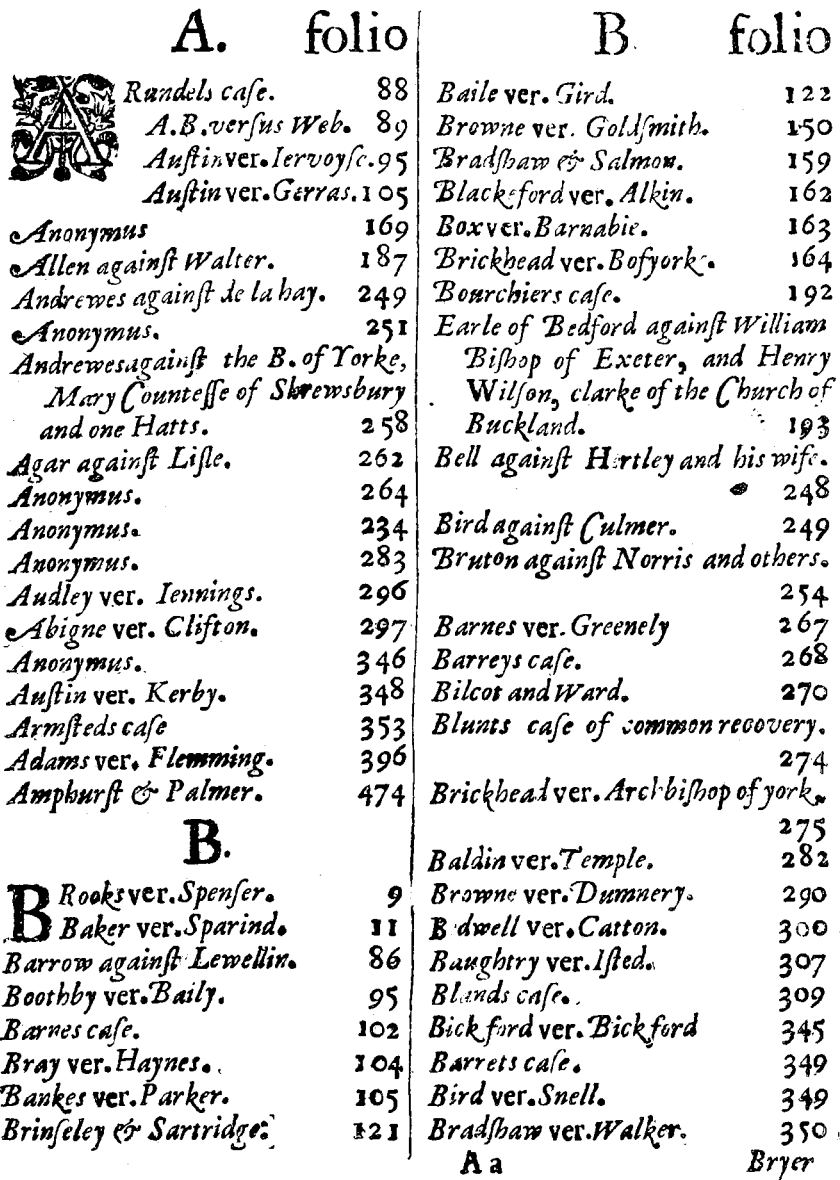 A. folio
ARundels caſe. 88
A.B.verſus Web. 89
Auſtin ver. Iervoyſe. 95
Auſtin ver. Gerras. 105
Anonymus 169
Allen againſt Walter. 187
Andrewes againſt de la hay. 249
Anonymus. 251
Andrewes againſt the B. of Yorke,
Mary Counteſſe of Shrewsbury
and one Hatts. 258
Agar againſt Liſle. 262
Anonymus. 264
Anonymus. 234
Anonymus. 283
Audley ver. Iennings. 296
Abigne ver. Clifton. 297
Anonymus. 346
Auſtin ver. Kerby. 348
Armſteds caſe 353
Adams ver. Flemming. 396
Amphurſt & Palmer. 474
B.
BRooks ver. Spenſer. 9
Baker ver. Sparind. 11
Barrow againſt Lewellin. 86
Boothby ver. Baily. 95
Barnes caſe. 102
Bray ver. Haynes. 104
Bankes ver. Parker. 105
Brinſeley & Sartridge. 121
B folio
Baile ver. Gird. 122
Browne ver. Goldſmith. 150
Bradſhaw & Salmon. 159
Blackeford ver. Alkin. 162
Box ver. Barnabie. 163
Brickhead ver. Bofyork. 164
Bourchiers caſe. 192
Earle of Bedford againſt William
Biſhop of Exeter, and Henry
Wilſon, clarke of the Church of
Buckland. 193
Bell againſt Hartley and his wife.
248
Bird againſt Culmer. 249
Bruton againſt Norris and others.
254
Barnes ver. Greenely 267
Barreys caſe. 268
Bilcot and Ward. 270
Blunts caſe of common recovery.
274
Brickhead ver. Archbiſhop of york.
275
Baldin ver. Temple. 282
Browne ver. Dumnery. 290
Bedwell ver. Catton. 300
Baughtry ver. Iſted. 307
Blands caſe. 309
Bickford ver. Bickford 345
Barrets caſe. 349
Bird ver. Snell. 349
Bradſhaw ver. Walker. 350
A a Bryer